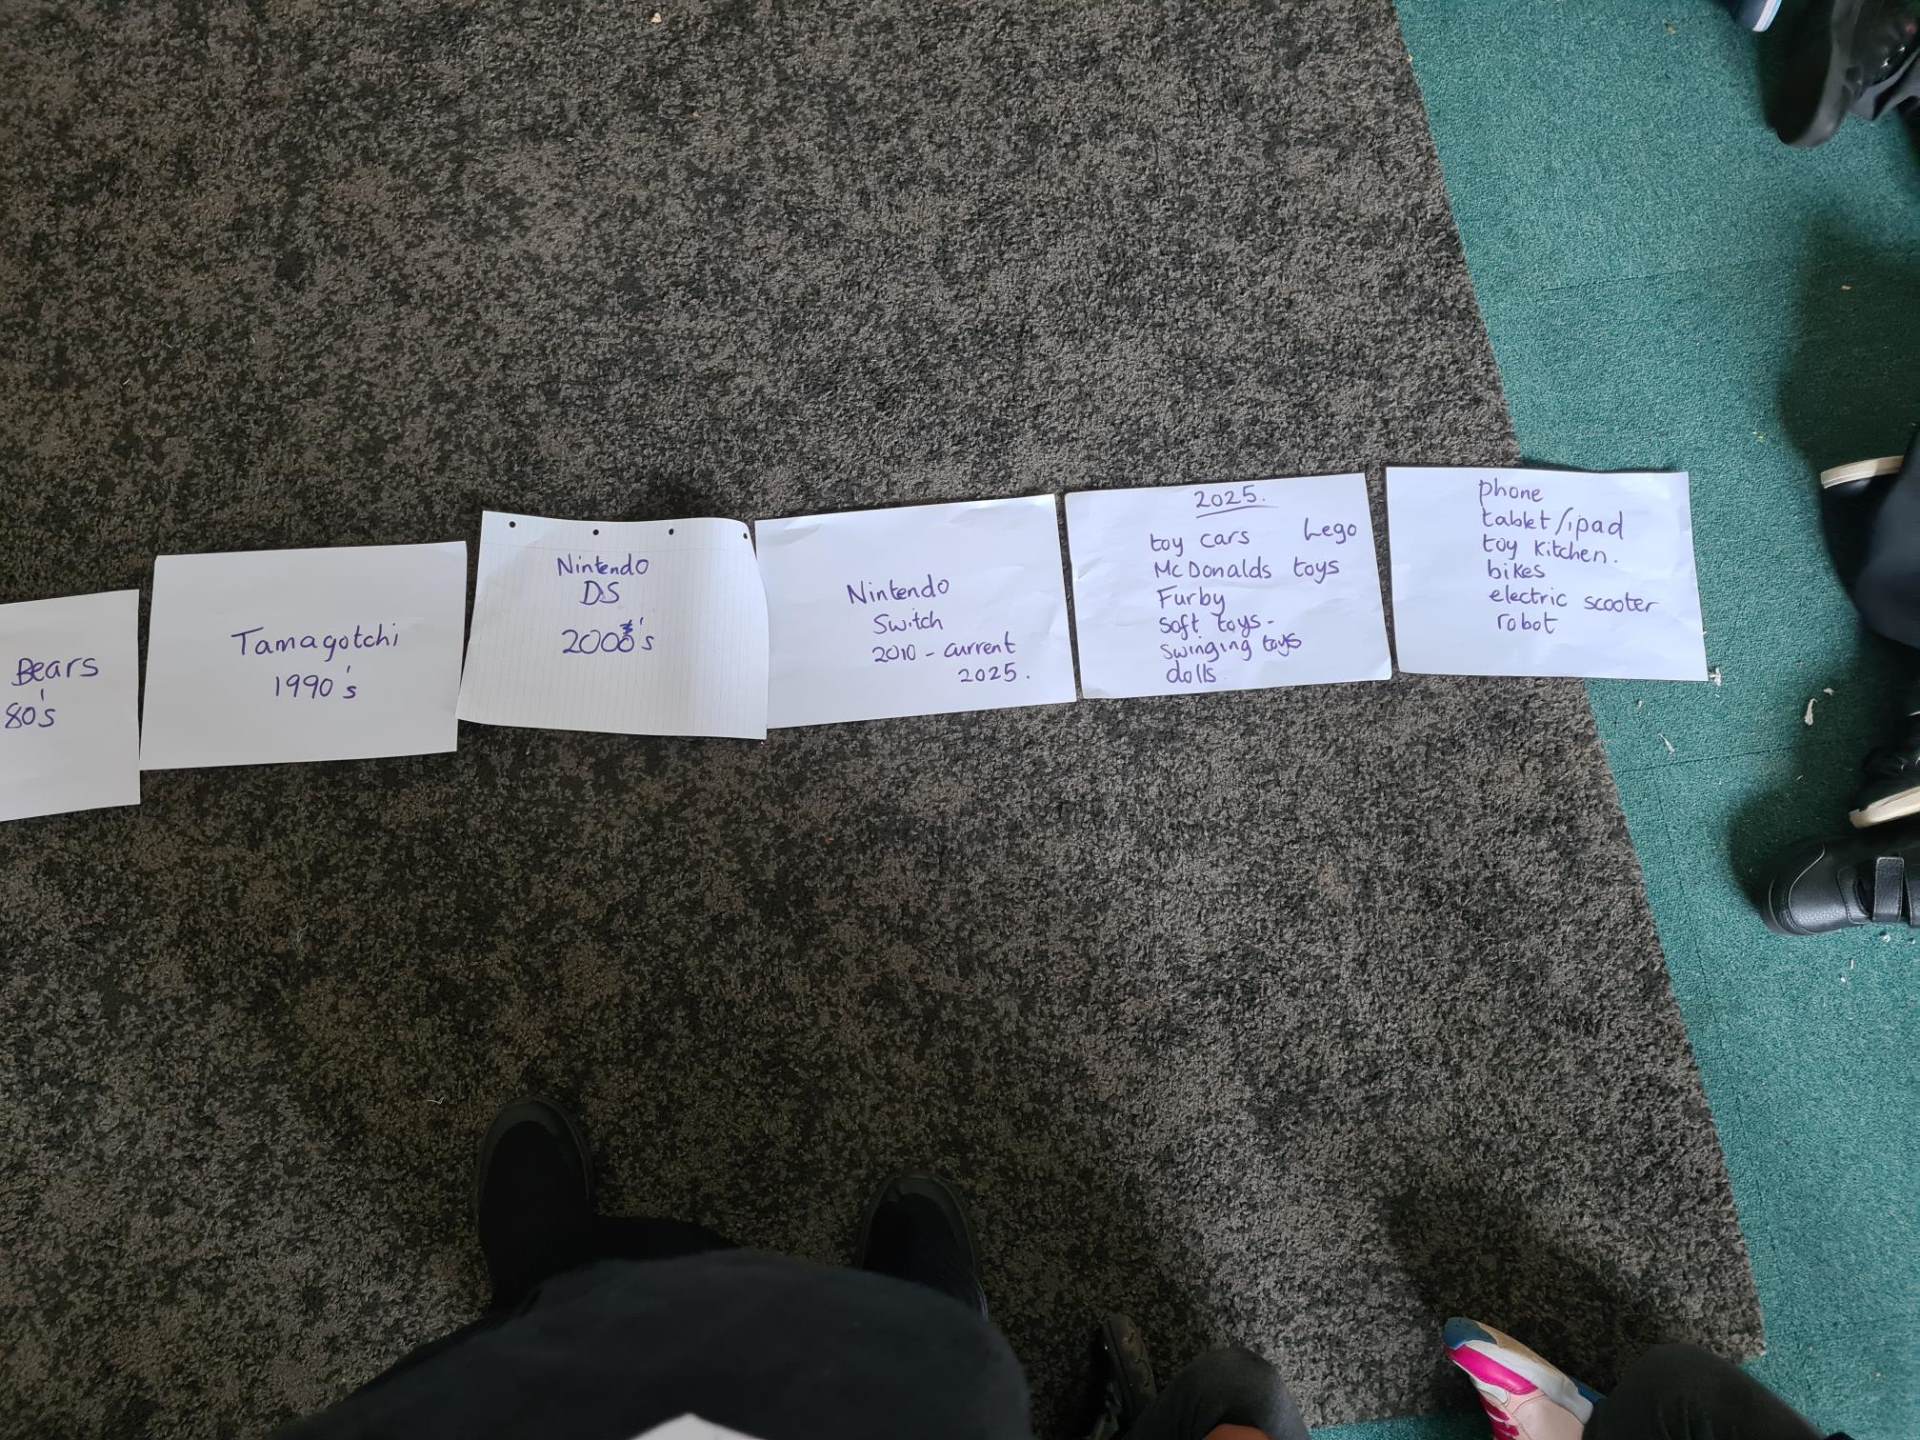 Bears
80's
Tamagotchi
1990's
Nintendo
DS
2000's
Nintendo
Switch
2010 - current
2025.
2025.
toy cars Lego
McDonalds toys
Furby
Soft toys -
Swinging toys
dolls
phone
tablet/ipad
toy kitchen.
bikes
electric scooter
robot